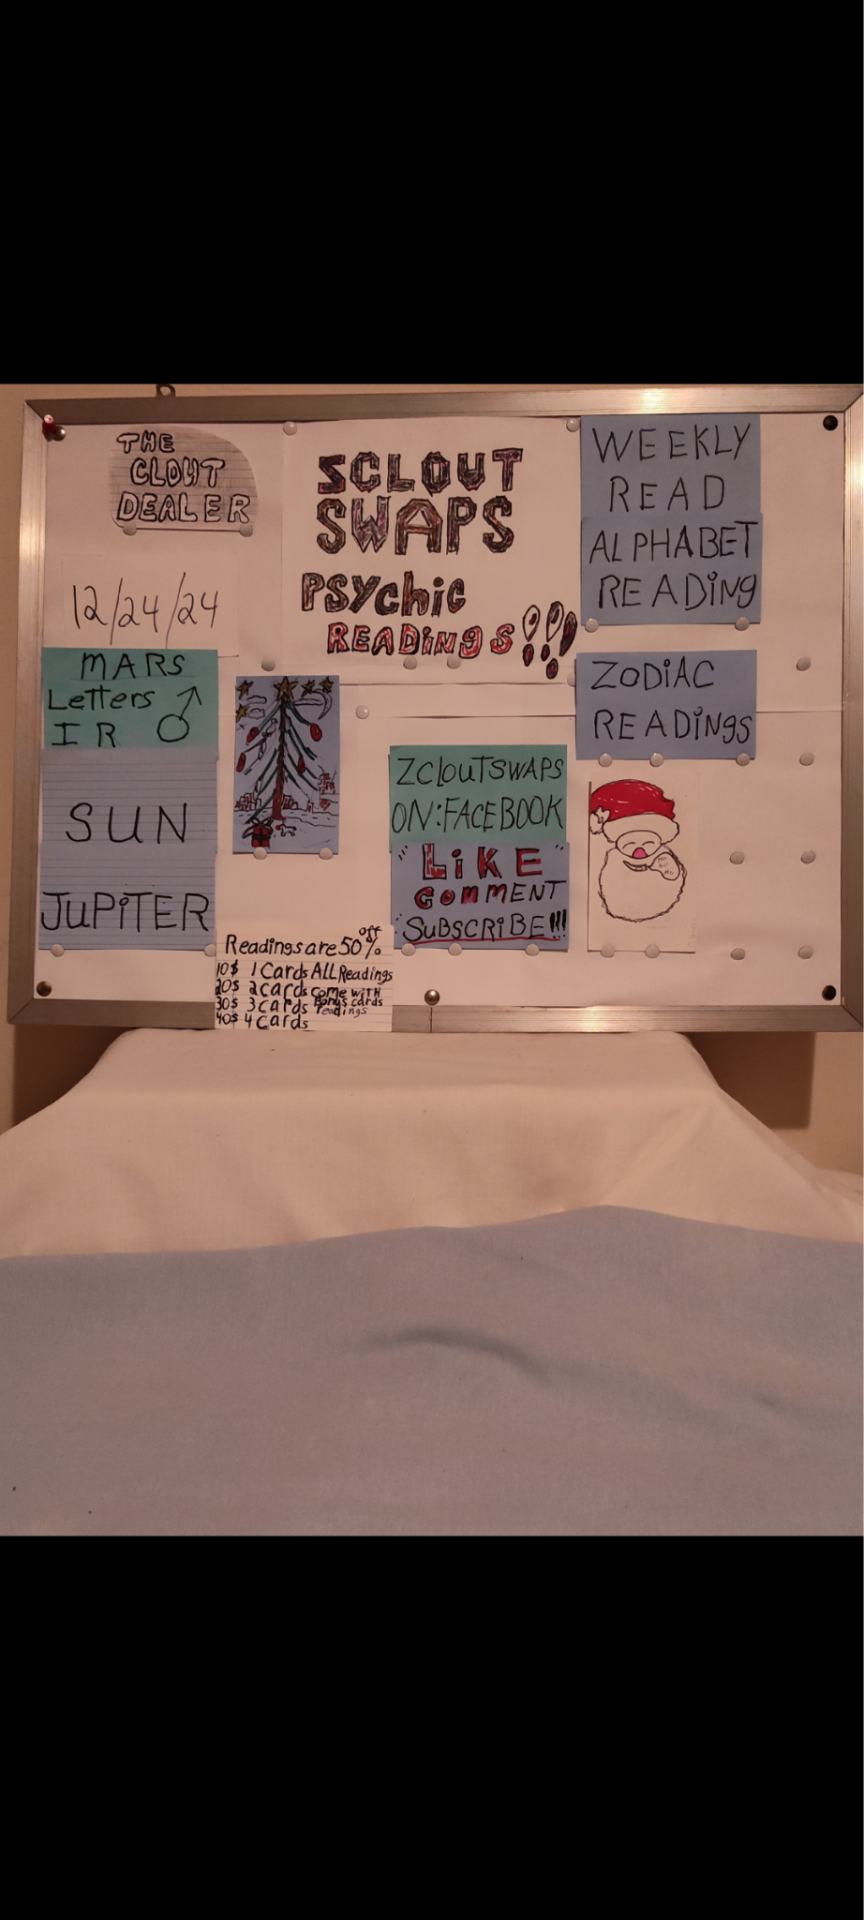 THE
CLOUT
DEALER
12/24/24
MARS
Letters
I R
SUN
JUPiTER
SCLOUT
SWAPS
PSYchic
READiNgS!!!
WEEKLY
READ
ALPHABET
READiNg
ZODiAC
READiNgS
ZCLOUTSWAPS
ON:FACEBOOK
"LiKE"
COMMENT
"SUBSCRiBE"!!!
Readings are 50% off
10$ 1 Cards ALL Readings
20$ 2 cards come WiTH
30$ 3 cards Bonus cards
readings
40$ 4 cards